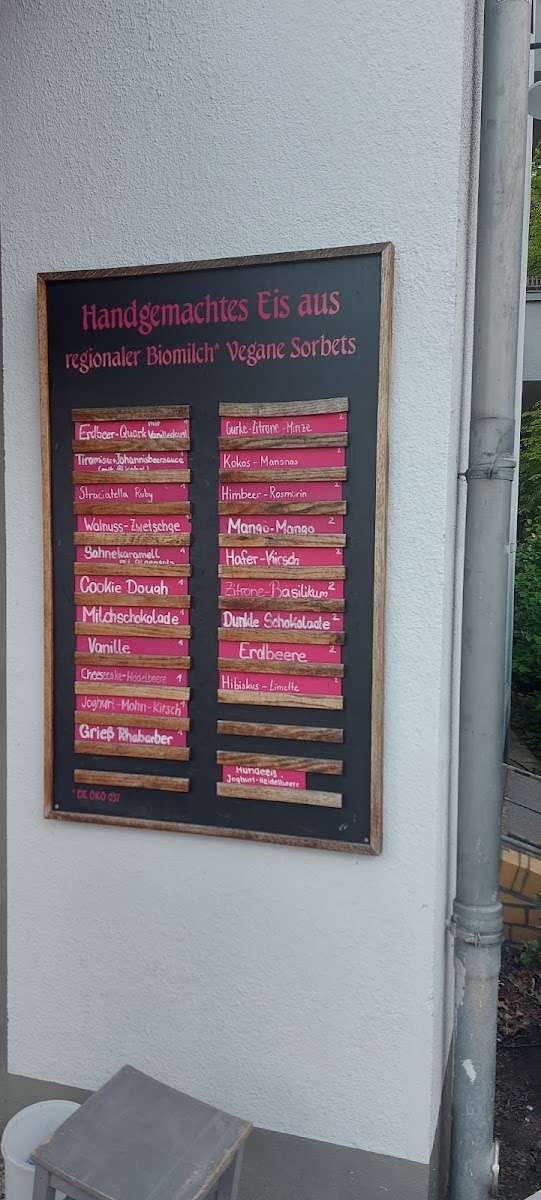 Handgemachtes Eis aus
regionaler Biomilch* Vegane Sorbets
Erdbeer-Quark mit Vanillecrunch 1
Tiramisu+Johannisbeersauce
(mit Alkohol)
Straciatella Ruby
Walnuss-Zwetschge 1
Sahnekaramell 1
mit
Cookie Dough 1
Milchschokolade 1
Vanille 1
Cheesecake-Heidelbeere 1
Joghurt-Mohn-Kirsch 1
Grieß Rhabarber 1
* DE ÖKO 037
Gurke-Zitrone-Minze 2
Kokos-Mananas 2
Himbeer-Rosmarin 2
Mango-Mango 2
Hafer-Kirsch 2
Zitrone-Basilikum 2
Dunkle Schokolade 2
Erdbeere 2
Hibiskus-Limette 2
Hundeeis
Joghurt-Heidelbeere